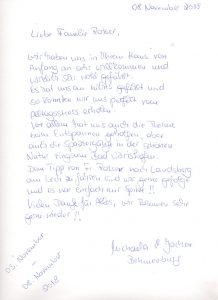 08. November 2018
Liebe Familie
wir haben uns in Ihrem Haus von
Anfang an sehr willkommen und
wirklich sehr wohl gefühlt.
Es hat uns an nichts gefehlt und
so konnten wir uns perfekt vom
Alltagsstress erholen.
Vor allem hat uns auch die Therme
beim Entspannen geholfen, aber
auch die Spaziergänge in der schönen
Natur Bad Wörishofen.
Den Tipp von Fr. nach Landsberg
am Lech zu fahren sind wir gerne gefolgt
und es war einfach nur schön!!
Vielen Dank für Alles, wir kommen sehr
gerne wieder!!
Michaela &
05. November
-
08. November
2018